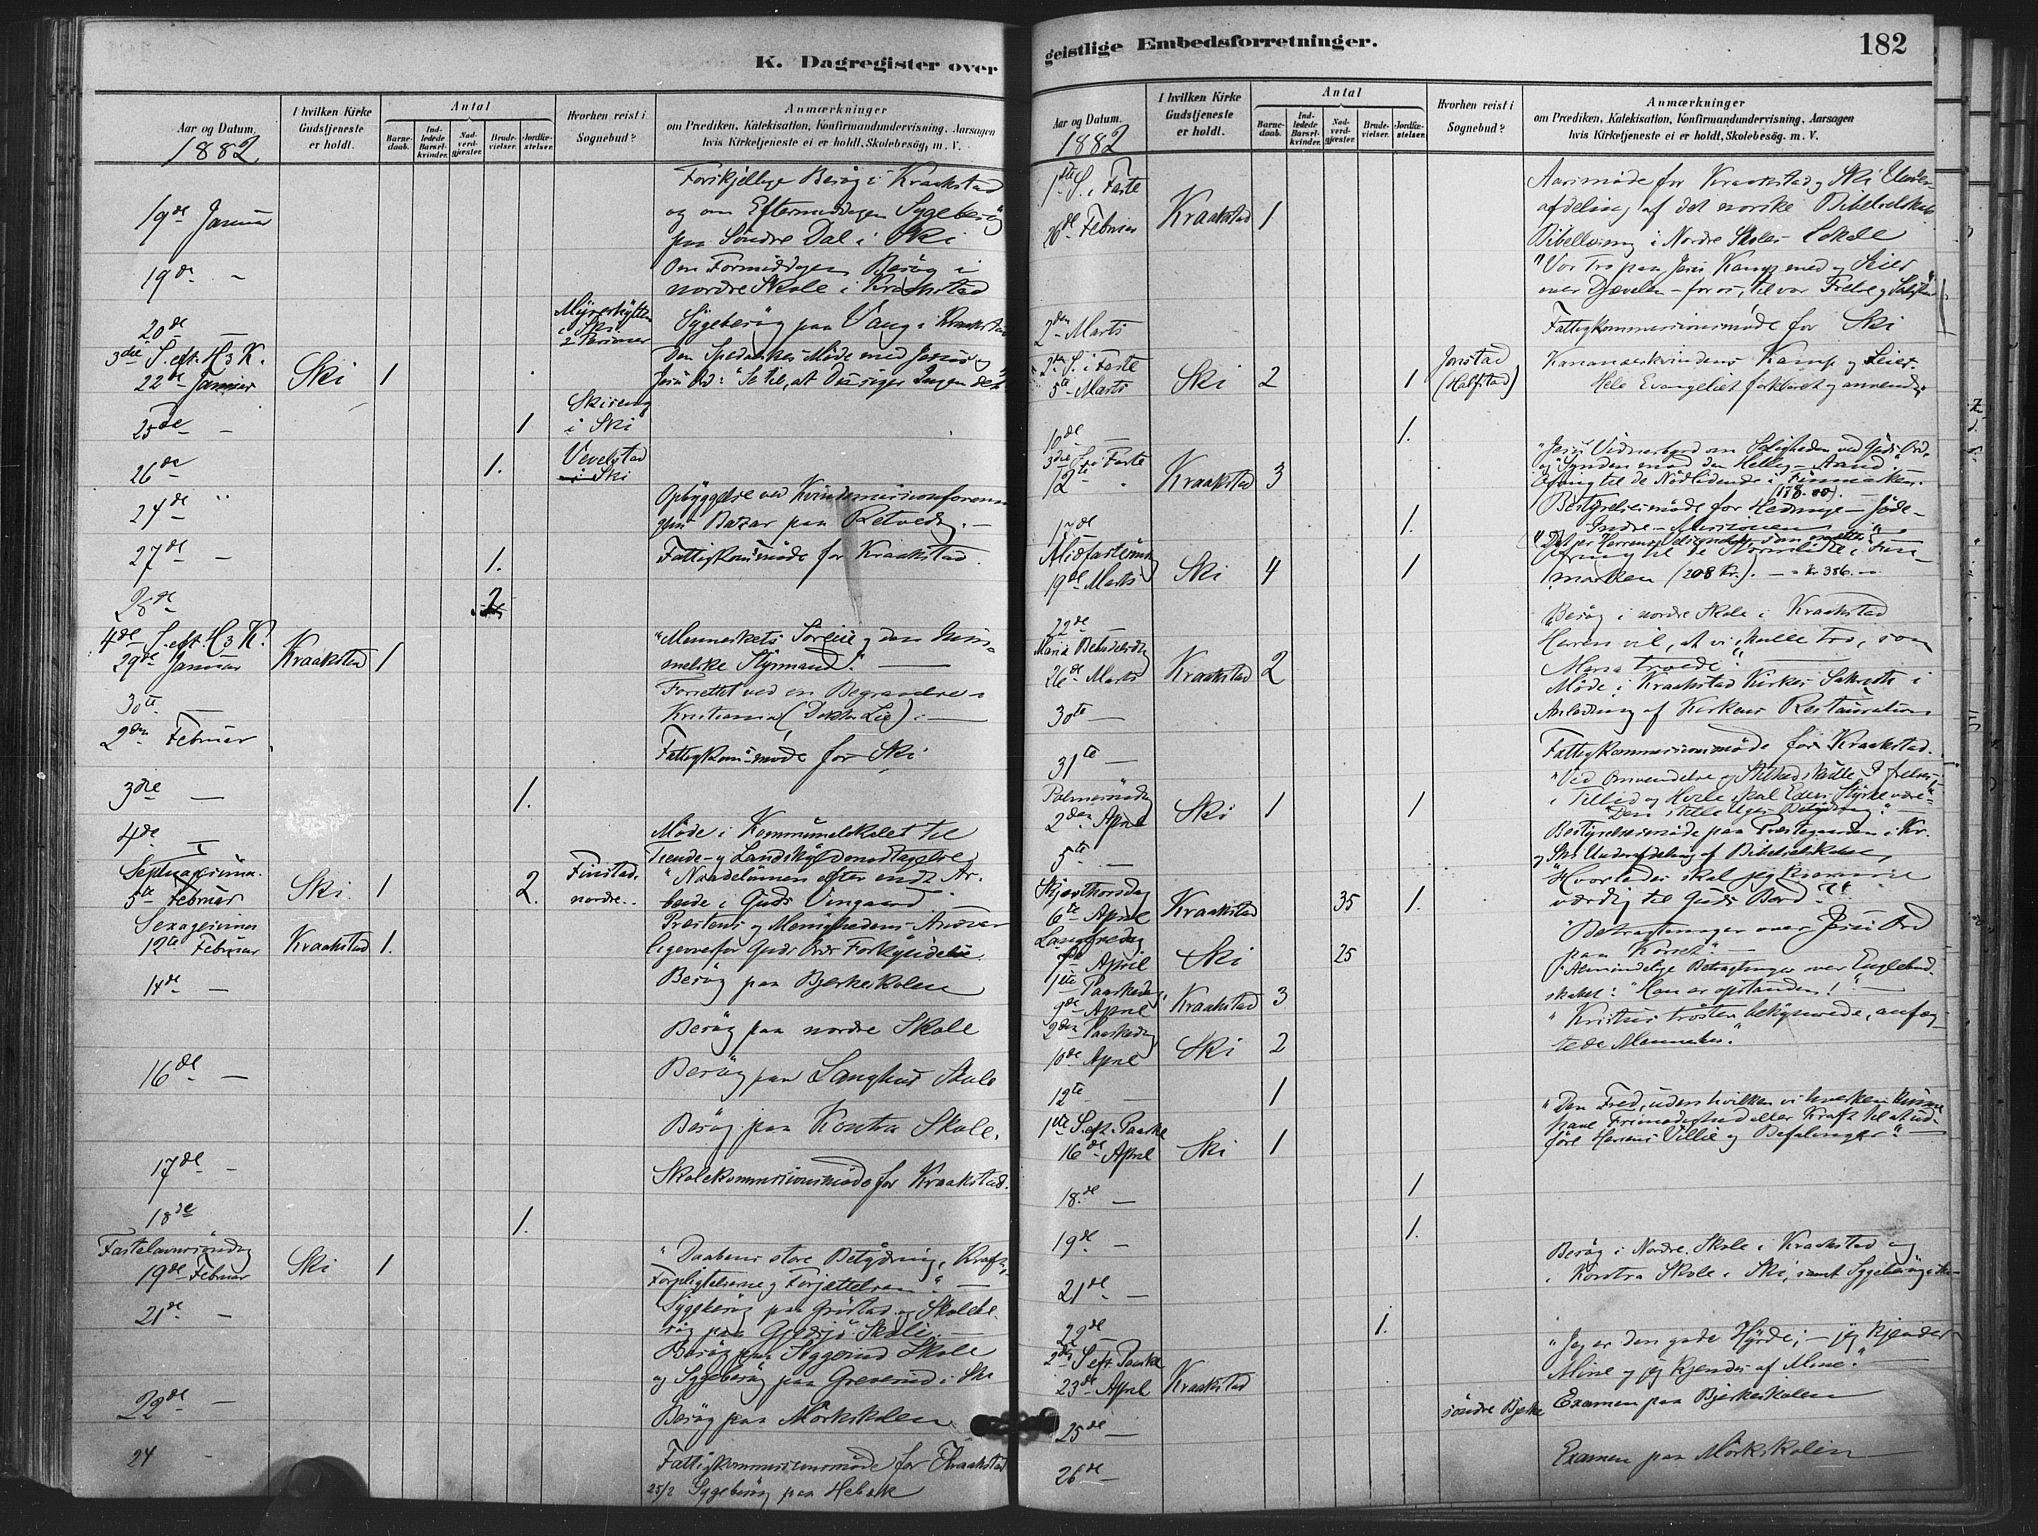 K. Dagregister over
Aar og Datum.
1882
I hvilken Kirke
Gudstjeneste
er holdt.
Antal
Barne-
daab.
Ind-
ledede
Barsel-
kvinder.
Nad-
verd-
gjester.
Brude-
vielser.
Jordfæ-
stelser.
Hvorhen reist i
Sognebud?
Anmærkninger
om Prædiken, Katekisation, Konfirmandundervisning, Aarsagen
hvis Kirketjeneste ei er holdt, Skolebesög, m. V.
Forskjellige Besøg i Kraakstad
19de Januar og om Eftermiddagen Sygebesøg
paa Søndre Dal i Ski
19de - Om Formiddagen Besøg i
nordre Skole i Kraakstad
20de — Myrerhytten i Ski 2 Personer Sygebesøg paa Vang i Kraakstad
3die S. eft. H3K. Den Spedalskes Møde med Jesus og
22de Januar Ski 1 Jesu Ord: "Se til, at Du siger Ingen det"
25de - 1 Skireng
i Ski
26de 1. Vevelstad
i Ski
24de " Opbyggelse ved Kvindemissionsforenin-
gens Bazar paa Retvedt. —
27de - 1. Fattigkom's møde for Kraakstad.
28de 2
4de S. eft. H3K.
29de Januar Kraakstad 1 "Menneskets Søreise og den him-
melske Styrmand". —
30te — Forrettet ved en Begravelse i
Kristiania (Doktor Lie). —
2den Februar
Fattigkom's møde for Ski
3die — 1.
4de — Møde i Kommunelokalet til
Tiende- og Landskyldmodtagelse
Septuagesima
5te Februar Ski. 1 2. Finstad
nordre.. "Naadelønnen efter endt Ar-
beide i Guds Vingaard —
Sexagesima
12te Februar Kraakstad 1. Prestens og Menighedens Ansvar
ligeoverfor Guds Ords Forkyndelse.
14de - Besøg paa Bjerkeskolen
Besøg paa nordre Skole
16de — Besøg paa Langhus Skole
Besøg paa Kontra Skole.
17de - Skolekommissionsmøde for Kraakstad.
18de 1.
Fastelavnssøndag
19de Februar Ski 1 "Daabens store Betydning, Kraft,
Forpligtelserne og Forjættelsen". —
21de - Sygebesøg paa Grøstad og Skolebe-
søg paa Gjedsjø Skole. —
Besøg paa Siggerud Skole
og Sygebesøg paa Greverud i Ski
22de — Besøg paa Mörkskolen
24 - Fattigkommissionsmøde for Kraakstad
25/2 Sygebesøg paa Hebæk
geistlige Embedsforretninger.
182
Aar og Datum.
1882
I hvilken Kirke
Gudstjeneste
er holdt.
Antal
Barne-
daab.
Ind-
ledede
Barsel-
kvinder.
Nad-
verd-
gjester.
Brude-
vielser.
Jordfæ-
stelser.
Hvorhen reist i
Sognebud?
Anmærkninger
om Prædiken, Katekisation, Konfirmandundervisning, Aarsagen
hvis Kirketjeneste ei er holdt, Skolebesög, m. V.
1ste S. i Faste
26de Februar Kraakstad 1 Aarsmøde for Kraakstad og Ski Under-
afdeling af det norske Bibelselskab
Bibellæsning i Nordre Skoles Lokale
"Vor Tro paa Jesu Kamp med og Seier
over Djævelen - for os, til vor Frelse og Salighed"
2den Marts Fattigkommissionsmøde for Ski
2den S. i Faste
5te Marts Ski 2 1 Jonstad
(Halfstad) Kananæerkvindens Kamp og Seier.
Hele Evangeliet forklaret og anvendt.
10de — 1.
3die S. i Faste
12te " Kraakstad 3 "Jesu Vidnesbyrd om Saligheden ved Guds Ord
og Synden mod den Hellig-Aand" —
Ofring til de Nødlidende i Finmarken.
(178.00). —
17de 1. Bestyrelsesmøde for Hedninge- Jøde-
Indre- Missionen
Midfastesøndag
19de Marts Ski 4 1 Ofring til de Nødlidte i Fin-
marken (208 Kr.). — = Kr 386. —
22de — Besøg i nordre Skole i Kraakstad
Mariæ Bebudelsesdag
26de Marts Kraakstad 2 Herren vil, at vi skulle tro, som
Maria troede". —
30te — Møde i Kraakstad Kirkes Sakristi i
Anledning af Kirkens Restauration
31te — Fattigkommissionsmøde for Kraakstad.
Palmesøndag
2den April Ski 1 1 "Ved Omvendelse og Stilhed skulle I frelses,
i Tillid og Hvile skal Eders Styrke være"
"Den stille Uges Betydning" —
5te — Bestyrelsesmøde paa Prestegaarden i Kr.
og Ski Underafdeling af Bibelselskabet.
Skjærthorsdag
6te April Kraakstad 35 1. "Hvorledes skal jeg komme
værdig til Guds Bord?"
Langfredag
7de April Ski 25 "Betragtninger over Jesu Ord
paa Korset" —
1ste Paaskedag
9de April Kraakstad 3 "Almindelige Betragtninger over Englebud-
skabet: "Han er opstanden!" —
2den Paaskedag
10de April Ski 2 "Kristus trøster bekymrede, anfæg-
tede Mennesker."
12te — 1
1ste S. eft. Paaske
16de April Ski 1 "Den Fred, uden hvilken vi hverken kunne
have Frimodighed eller Kraft til at ud-
føre Herrens Villie og Befalinger".
18de — 1
19de - 1.
21de - Besøg i Nordre Skole i Kraakstad og
i Kontra Skole i Ski, samt Sygebesøg i Ski
22de — 1.
2den S. eft. Paaske
23de April Kraakstad "Jeg er den gode Hyrde; — jeg kjender
Mine og jeg kjendes af Mine". —
25de — søndre Bjerke Examen paa Bjerkeskolen
26de — Examen paa Mörkskolen —